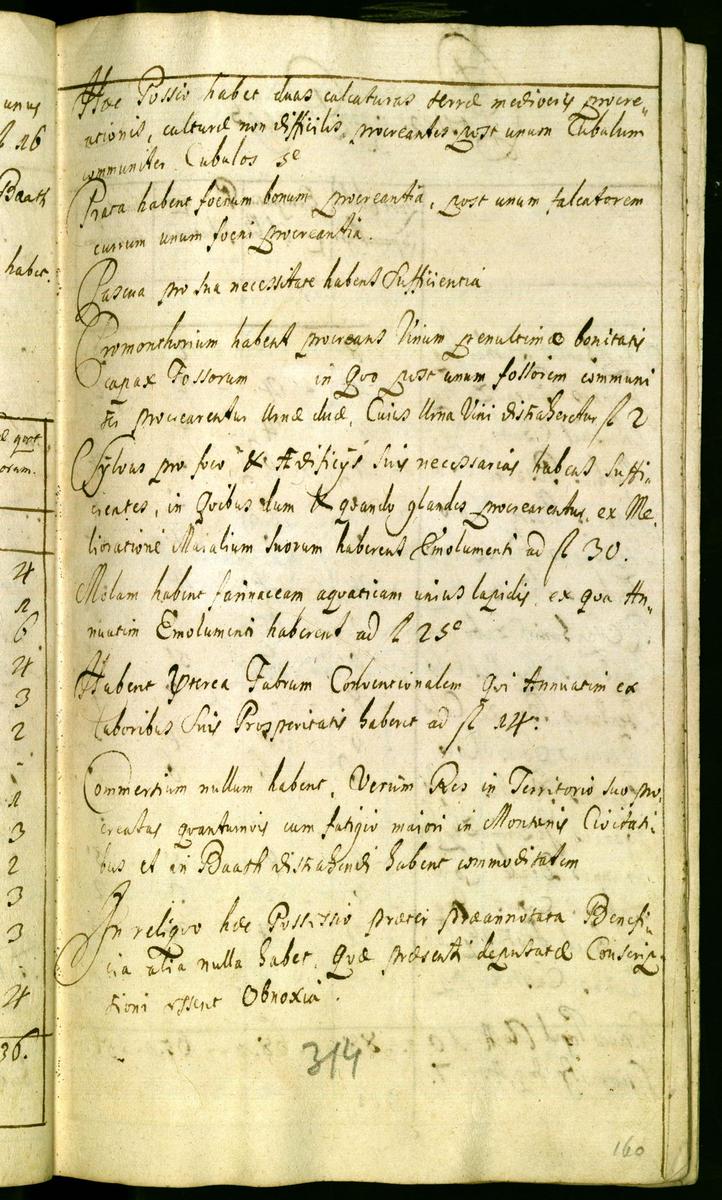 unus
fl 16
Baath
habet.
orum.
4
1
6
4
3
2
-
1
3
2
3
3
4
36.
Hæc Possio habet duas calcaturas terræ mediocris procre„
ationis, culturæ non difficilis, procreantes post unum Cubulum
communiter Cubulos 5e
Prata habent foenum bonum procreantia, post unum falcatorem
currum unum foeni procreantia.
Pascua pro sua necessitate habent Sufficientia
Promonthorium habent procreans Vinum penultimæ bonitatis
capax Fossorum in quo post unum fossorem communi
ter procrearentur Urnæ duæ, Cuius Urna Vini distraheretur fl 2
Sylvas pro foco, & Ædificÿs suis necessarias habent Suffi„
cientes, in quibus dum & quando glandes procrearentur, ex Me„
lioratione Maialium suorum haberent Emolumenti ad fl 30.
Molam habent farinaceam aquaticam unius lapidis, ex qua An„
nuatim Emolumenti haberent ad fl 25e
Habent pterea Fabrum Conventionalem qui Annuatim ex
Laboribus suis Prosperitatis haberet ad fl 14.
Commertium nullum habent, Verum Res in Territorio suo pro„
creatas quantumvis cum fatigio maiori in Montanis Civitati„
bus et in Baath distrahendi habent commoditatem
In reliquo hæc Possessio præter præannotata Benefi„
cia alia nulla habet, quæ præsenti deputatæ Conscrip„
tioni essent Obnoxia.
314
160